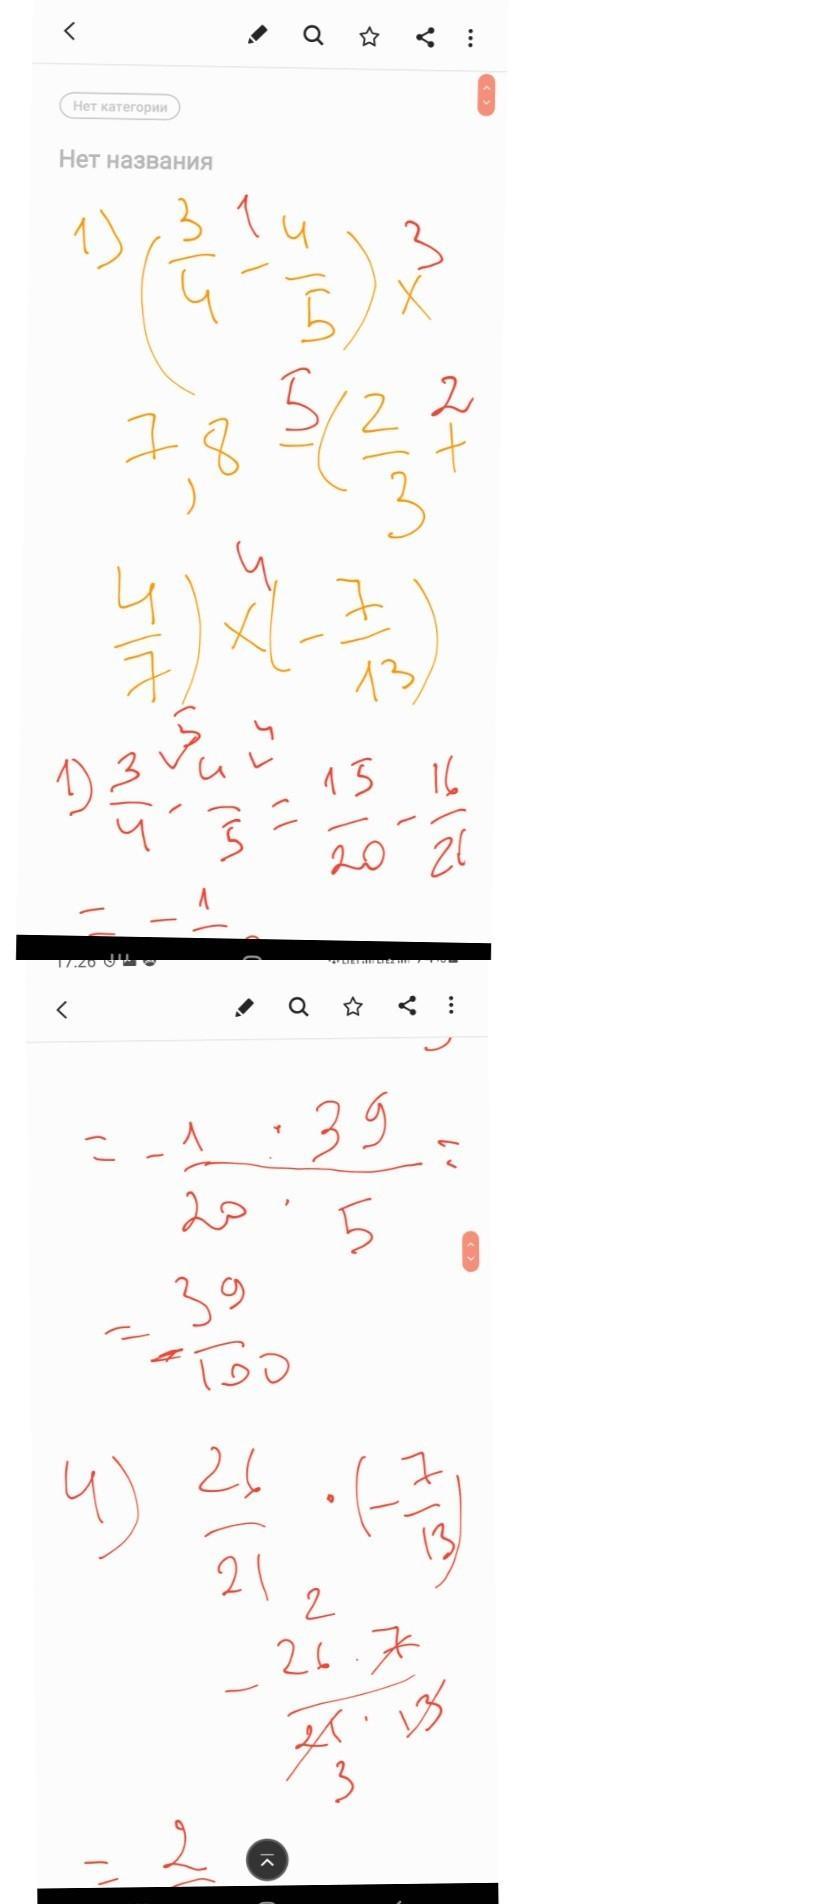 Нет категории
Нет названия
1) (3/4 -¹ 4/5) ×³
7,8 -⁵ (2/3 +²
4/7) ×⁴ (- 7/13)
1) 3/4 ⁵ - 4/5 ⁴ = 15/20 - 16/20
= - 1
17:26
= - 1 · 39 / 20 · 5 =
= - 39/100
4) 26/21 · (- 7/13)
2
- 26 · 7 / 21 · 13
3
= 2